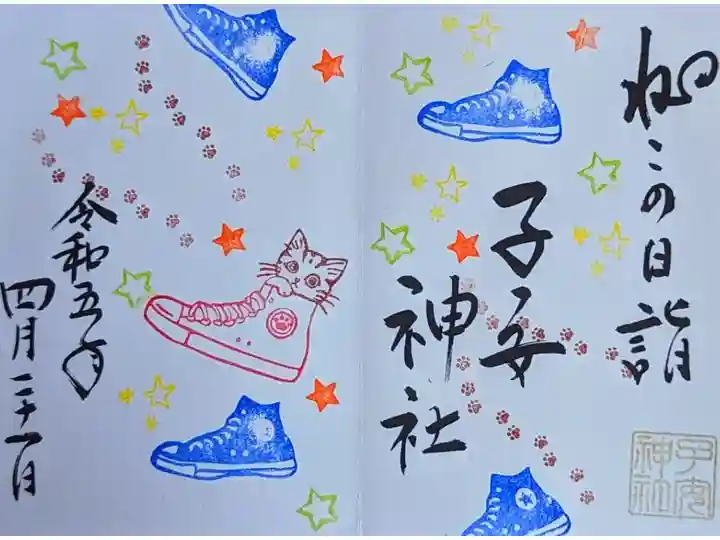 ねこの日詣
子安
神社
子安
神社
令和五年
四月二十二日